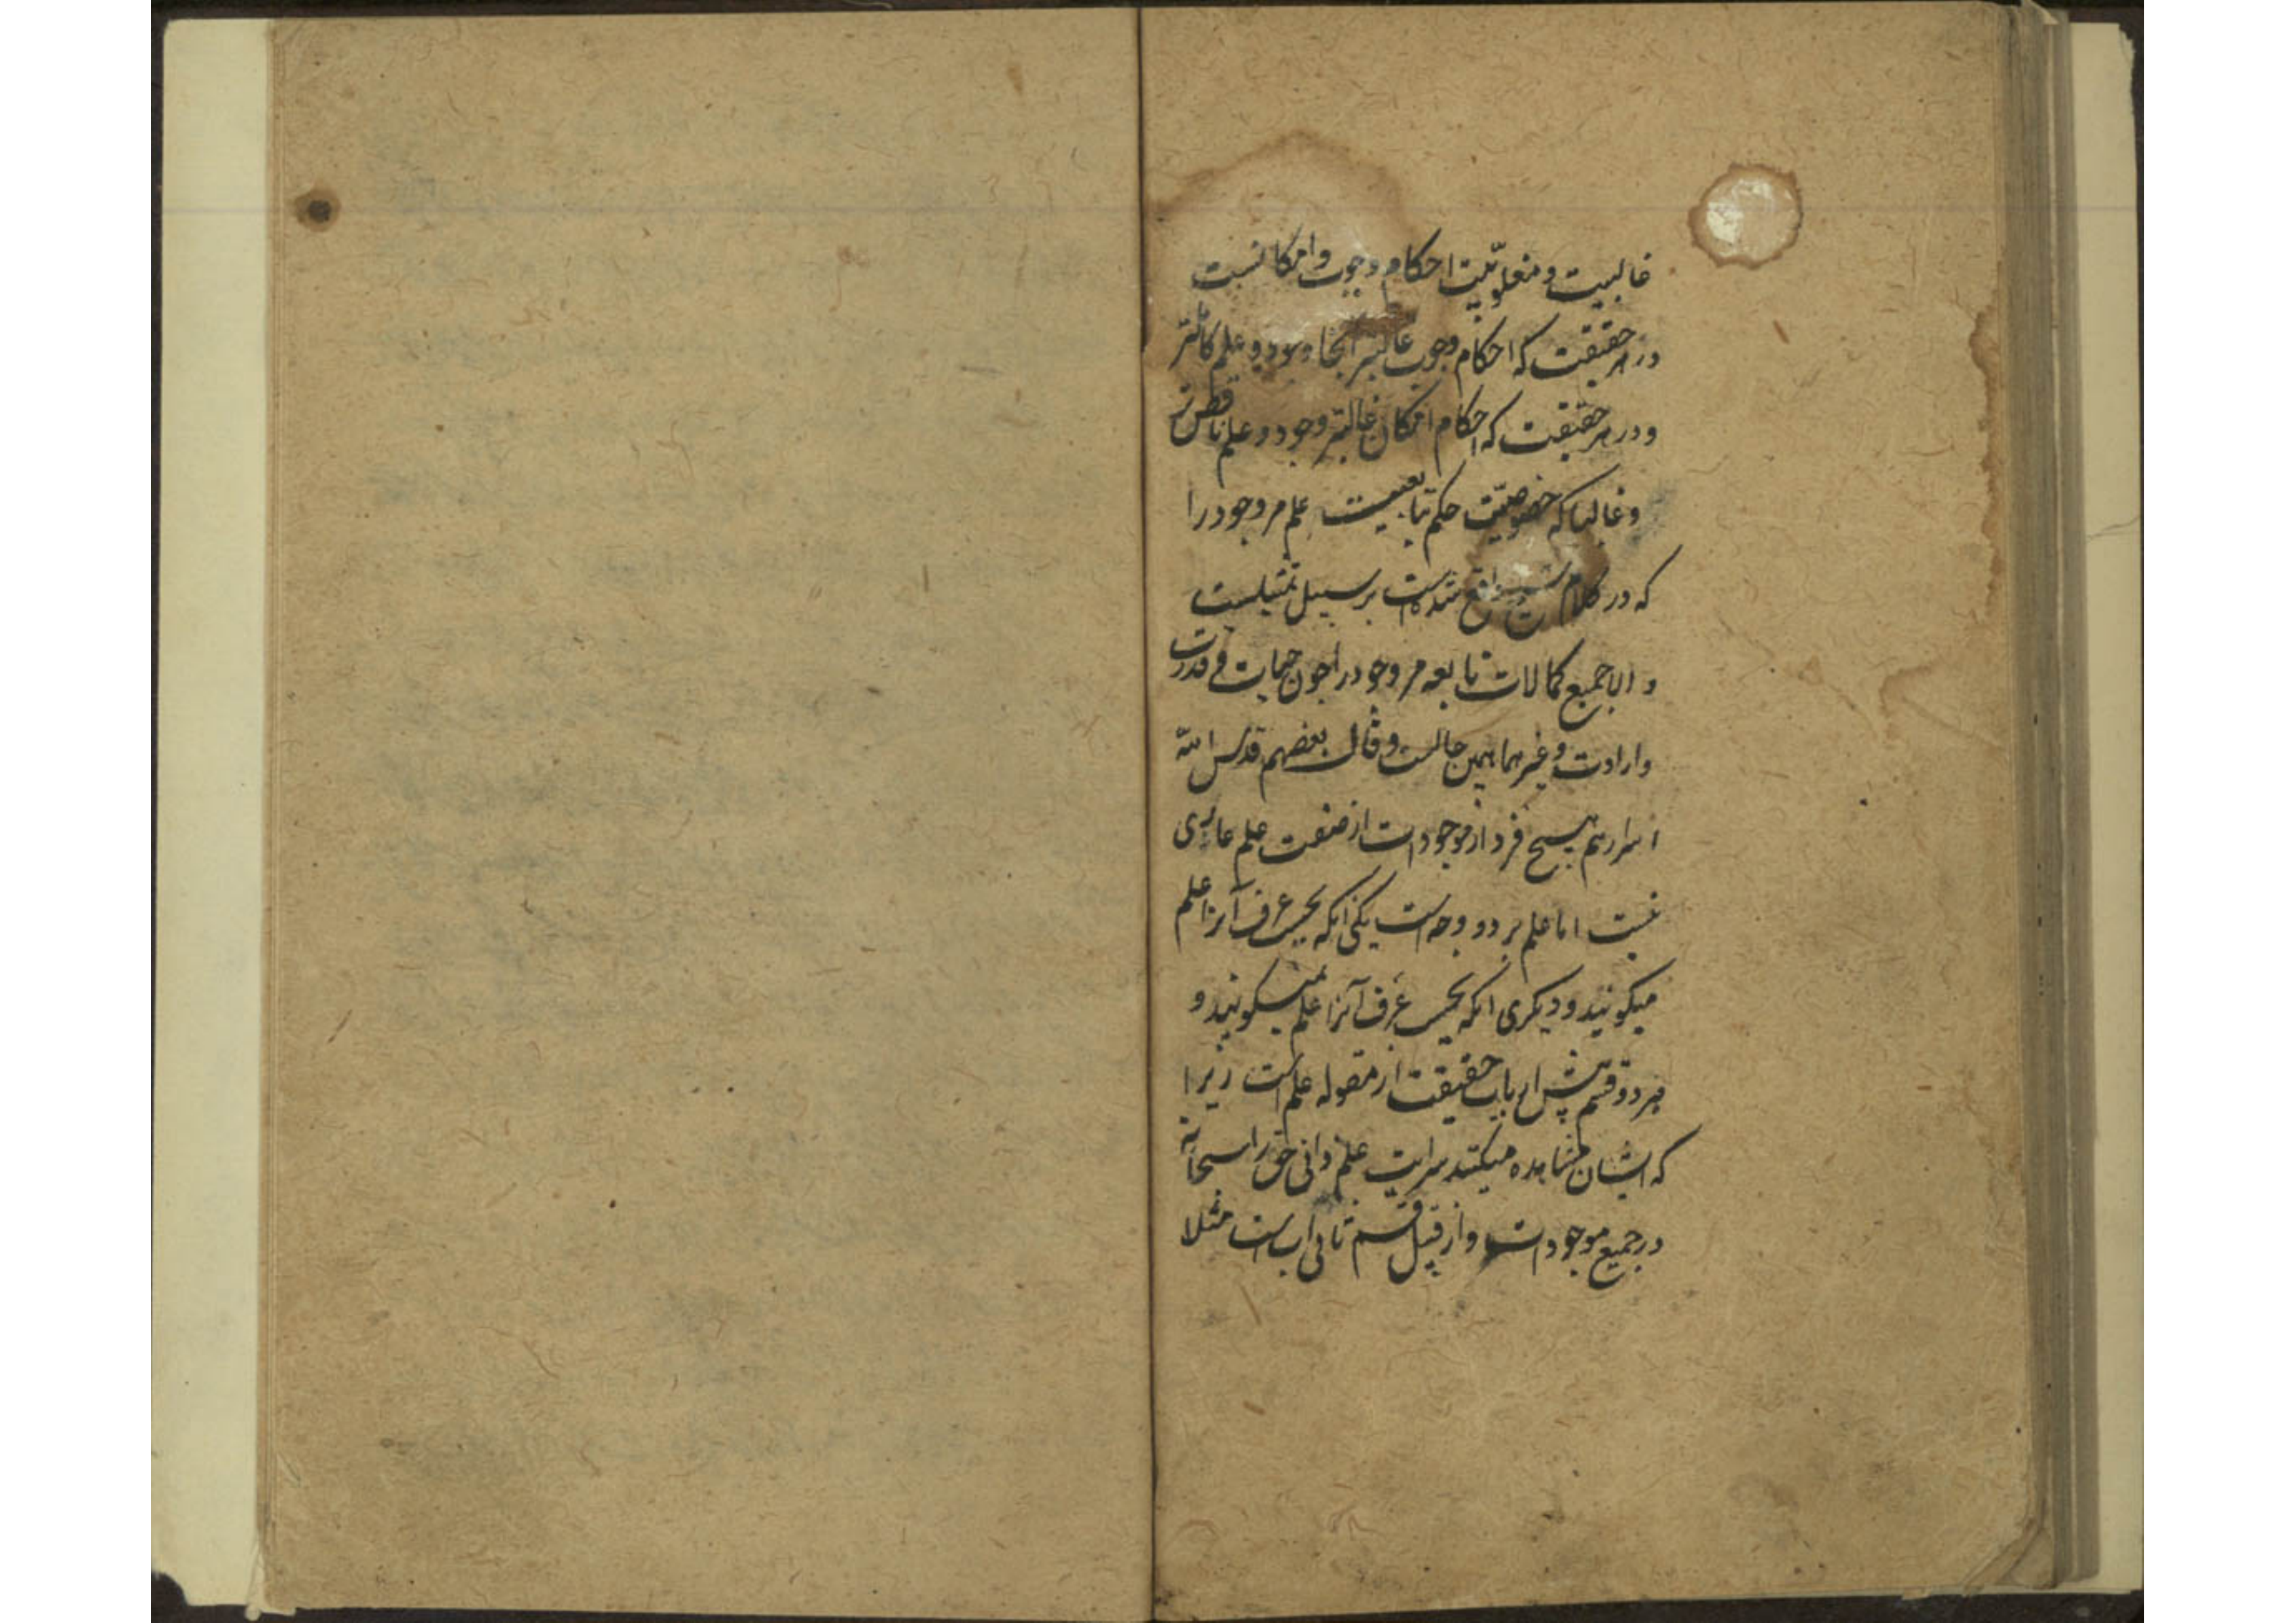 غالبیت و مغلوبیّت احکام وجوب و امکانست
در هر حقیقت که احکام وجوب غالبتر آنجا وجود و علم کاملتر
و در هر حقیقت که احکام امکان غالبتر وجود و علم ناقص‌تر
و غالبا که خصوصیّت حکم تابعیت علم مر وجود را
که در کلام شیخ واقع شده است بر سبیل تمثیلست
و الا جمیع کمالات تابعه مر وجود را چون حیات و قدرت
و ارادت و غیرهما همین حالست و قال بعضهم قدس الله
اسرارهم هیچ فرد از موجودات از صفت علم عاری
نیست اما علم بر دو وجه است یکی آنکه بحسب عرف آنرا علم
میگویند و دیگری آنکه بحسب عرف آنرا علم نمیگویند و
هر دو قسم پیش ارباب حقیقت از مقوله علم است زیرا
که ایشان مشاهده میکنند سرایت علم ذاتی حق را سبحانه
در جمیع موجودات و از قبیل قسم ثانی آب است مثلا